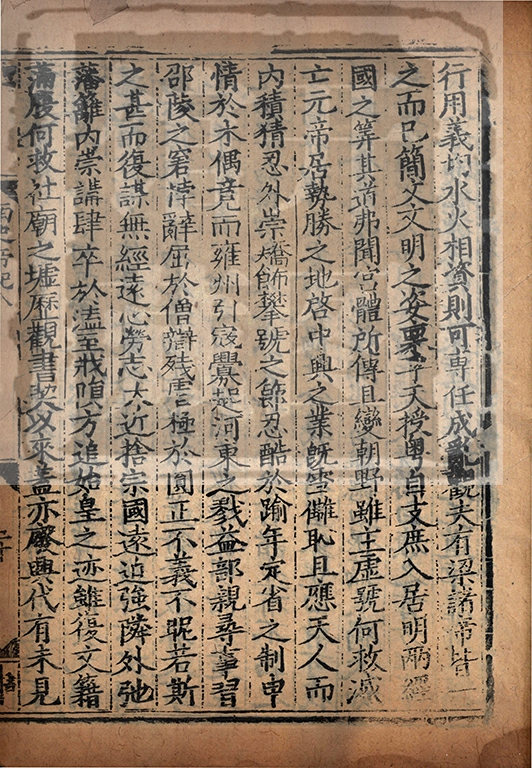 行用義均水火相資則可專任成亂觀夫有梁諸帝皆一
之而已簡文文明之姿稟乎天授粤自支庶入居明兩經
國之筭其道弗聞宮體所傳且變朝野雖主虛號何救滅
亡元帝居勢勝之地啓中興之業旣雪讎恥且應天人而
内積猜忍外崇矯飾攀號之節忍酷於踰年定省之制申
情於木偶竟而雍州引寇釁起河東之戮益部親尋事習
邵陵之窘悖辭屈於僧辯殘虐極於圓正不義不昵若斯
之甚而復謀無經遠心勞志大近捨宗國遠迫強隣外弛
藩籬内崇講肆卒於溘至戕隕方追始皇之迹雖復文籍
滿腹何救社廟之墟歷觀書契以來蓋亦廢興代有未見
南史帝紀八